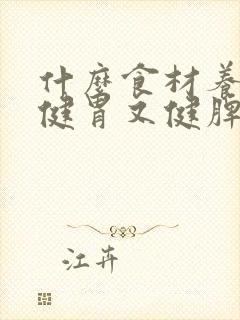 什麼食材養
健胃又健脾
江卉